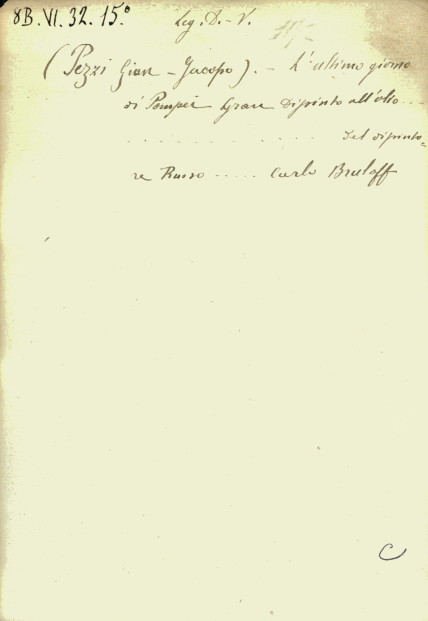 8B.VI.32.15.° Leg. D.-V.
(Pezzi Gian-Jacopo). - L'ultimo giorno
di Pompei Gran dipinto all'olio...
. . . . . . . . . . . . . . Del dipinto=
re Russo ..... Carlo Bruloff
C